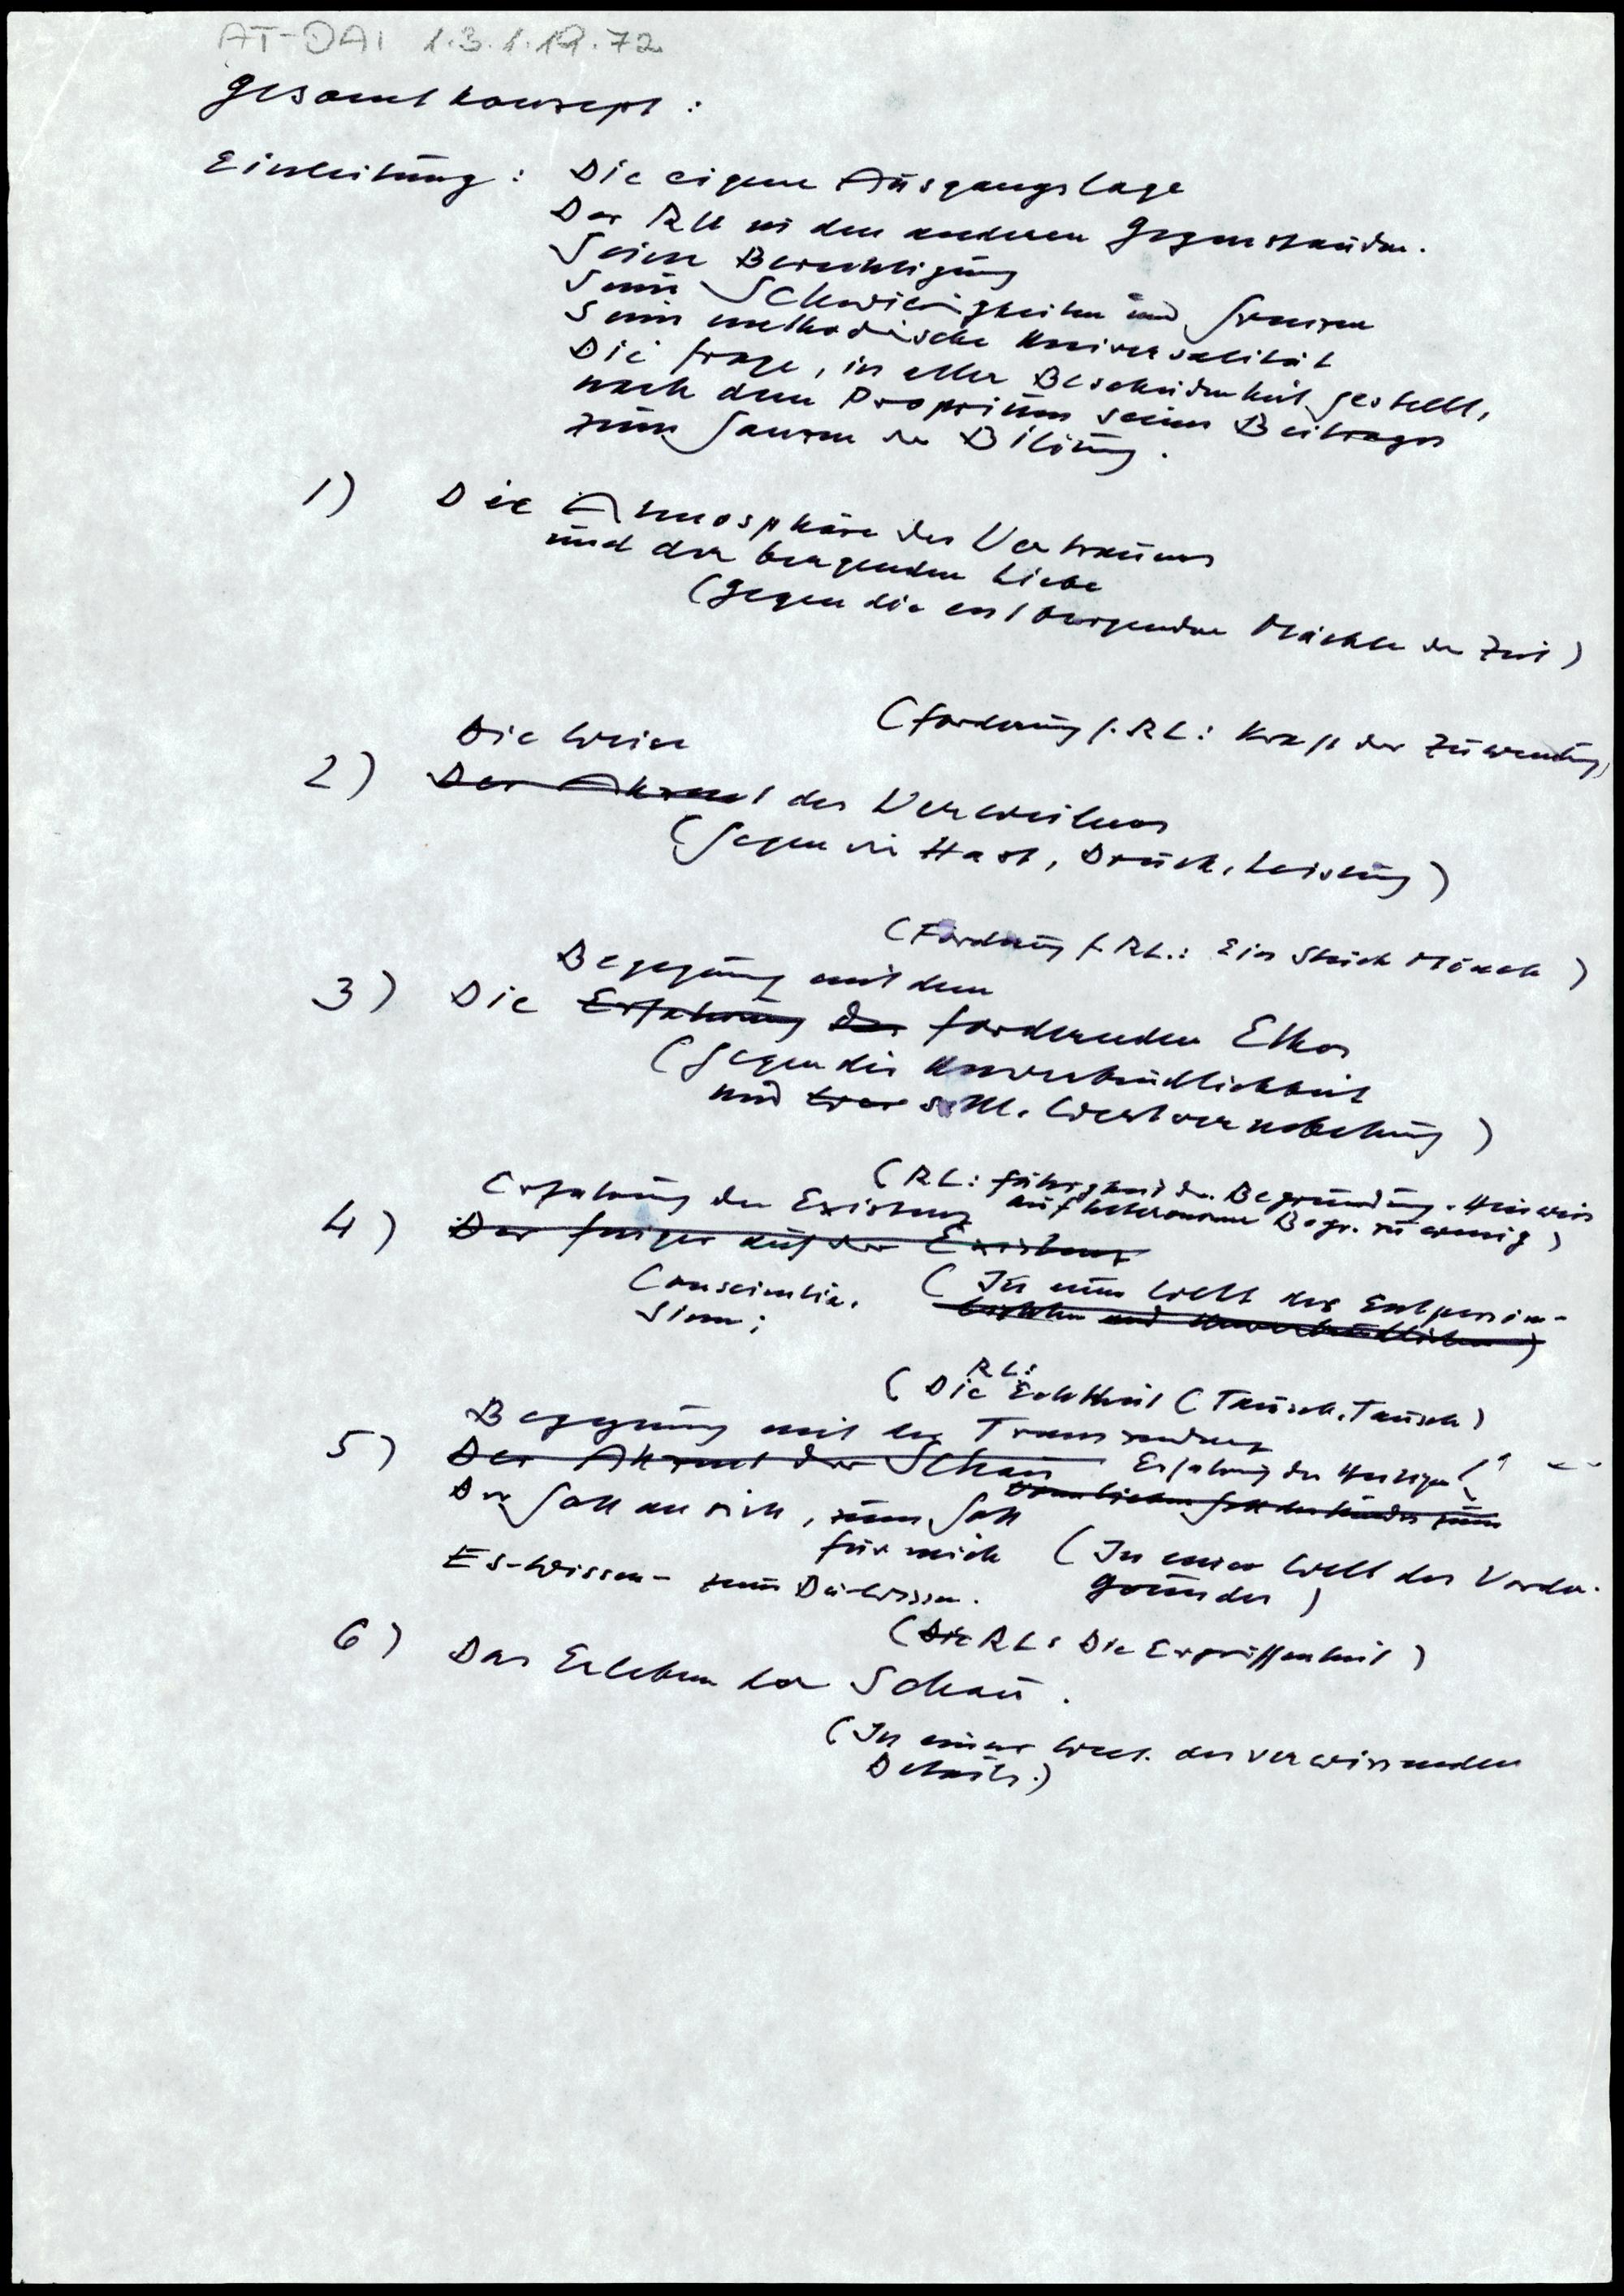 AT-DAI 1.3.1.19.72
Gesamtkonzept :
Einleitung : Die eigene Ausgangslage
Der RU in den anderen Gegenständen.
Seine Berechtigung
Seine Schwierigkeiten und Grenzen
Seine methodische Universalität
Die Frage, in aller Bescheidenheit gestellt,
nach dem Proprium seines Beitrages
zum Ganzen der Bildung.
1) Die Atmosphäre des Vertrauens
und der bergenden Liebe
(Gegen die entbergenden Mächte der Zeit)
(Forderung f. RL: Kraft der Zuwendung)
Die Weise
2) Der Akzent des Verweilens
(Gegen die Hast, Druck, Leistung)
(Forderung f. RL.: Ein Stück Mönch)
Begegnung mit dem
3) Die Erfahrung des fordernden Ethos
(Gegen die Unverbindlichkeit
und Wertvernebelung)
(RL: Fähigkeit der Begründung. Hinweis
auf heteronome Begr. zu wenig)
Erfahrung der Existenz
4) Der Finger auf der Existenz
Conscientia. (In einer Welt des Entperson-
Sinn;
RL:
(Die Echtheit (Tausch, Tausch)
Begegnung mit der Transzendenz
5) Der Akzent der Schau Erfahrung des Heiligen
vom lieben Gott des Kindes zum
Der Gott an sich, zum Gott
für mich (In einer Welt des Vorder-
gründes)
Es-Wissen - zum Du-Wissen.
(Die RL: Die Ergriffenheit)
6) Das Erleben der Schau.
(In einer Welt der verwirrenden
Details.)